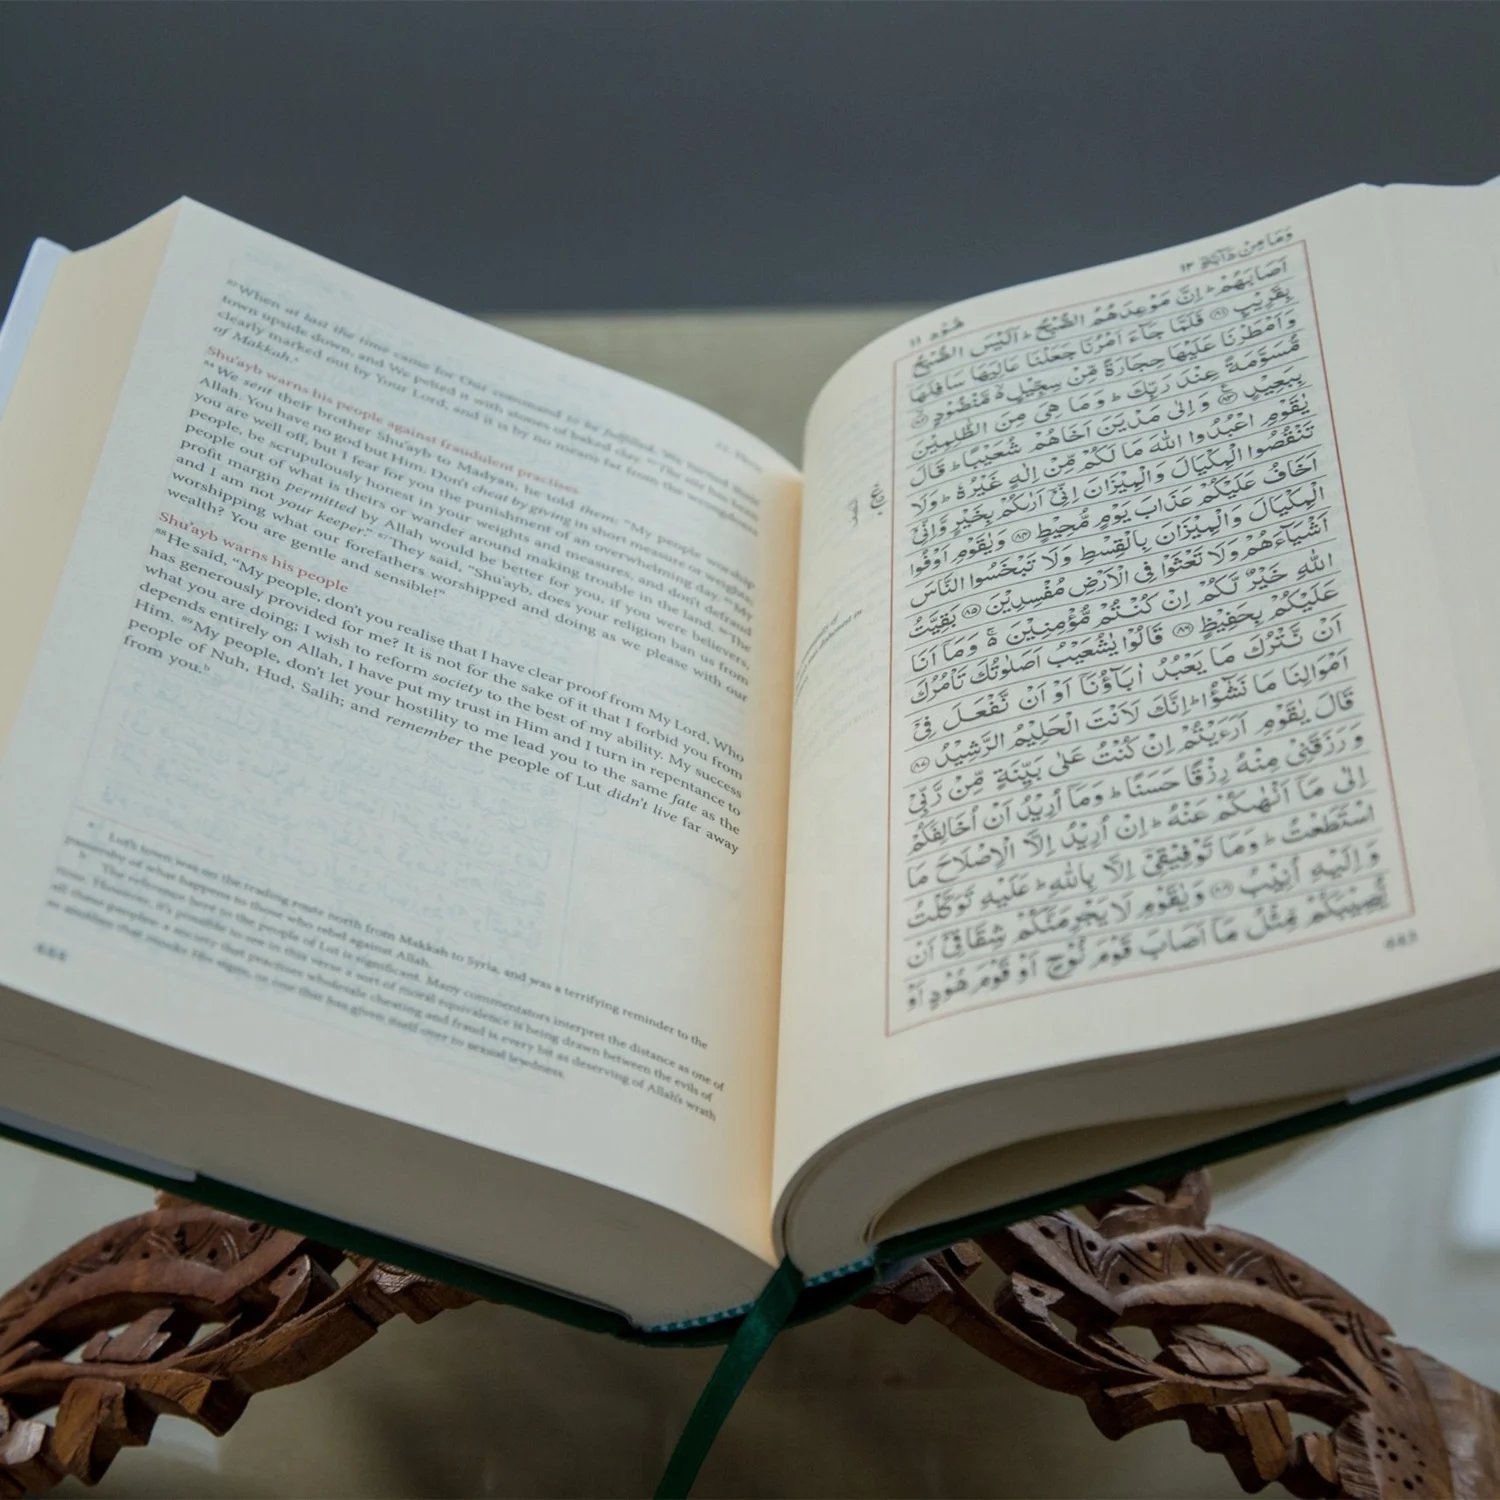 ⁸²When at last the time came for Our command to be fulfilled, We turned their
town upside down, and We pelted it with stones of baked clay, ⁸³
clearly marked out by Your Lord, and it is by no means far from the wrongdoers
of Makkah.ᵃ
Shu'ayb warns his people against fraudulent practises
⁸⁴We sent their brother Shu'ayb to Madyan, he told them: "My people worship
Allah. You have no god but Him. Don't cheat by giving in short measure or weights;
you are well off, but I fear for you the punishment of an overwhelming day. ⁸⁵My
people, be scrupulously honest in your weights and measures, and don't defraud
people out of what is theirs or wander around making trouble in the land. ⁸⁶The
profit margin permitted by Allah would be better for you, if you were believers,
and I am not your keeper." ⁸⁷They said, "Shu'ayb, does your religion ban us from
worshipping what our forefathers worshipped and doing as we please with our
wealth? You are gentle and sensible!"
Shu'ayb warns his people
⁸⁸He said, "My people, don't you realise that I have clear proof from My Lord. Who
has generously provided for me? It is not for the sake of it that I forbid you from
what you are doing; I wish to reform society to the best of my ability. My success
depends entirely on Allah, I have put my trust in Him and I turn in repentance to
Him. ⁸⁹My people, don't let your hostility to me lead you to the same fate as the
people of Nuh, Hud, Salih; and remember the people of Lut didn't live far away
from you.ᵇ
ᵃ Lut's town was on the trading route north from Makkah to Syria, and was a terrifying reminder to the
passersby of what happens to those who rebel against Allah.
ᵇ The reference here to the people of Lut is significant. Many commentators interpret the distance as one of
time. However, it's possible to see in this verse a sort of moral equivalence is being drawn between the evils of
all these peoples: a society that practises wholesale cheating and fraud is every bit as deserving of Allah's wrath
as another that mocks His signs, or one that has given itself over to sexual lewdness.
وَمَا مِنْ دَآبَّةٍ ١٢
هُوْد ١١
اَصَابَهُمْ ؕ اِنَّ مَوْعِدَهُمُ الصُّبْحُ ؕ اَلَيْسَ الصُّبْحُ
بِقَرِيْبٍ ﴿٨١﴾ فَلَمَّا جَآءَ اَمْرُنَا جَعَلْنَا عَالِيَهَا سَافِلَهَا
وَاَمْطَرْنَا عَلَيْهَا حِجَارَةً مِّنْ سِجِّيْلٍ ۙ مَّنْضُوْدٍ ﴿٨٢﴾
مُّسَوَّمَةً عِنْدَ رَبِّكَ ؕ وَمَا هِيَ مِنَ الظّٰلِمِيْنَ
بِبَعِيْدٍ ﴿٨٣﴾ وَاِلٰى مَدْيَنَ اَخَاهُمْ شُعَيْبًا ؕ قَالَ
يٰقَوْمِ اعْبُدُوا اللّٰهَ مَا لَكُمْ مِّنْ اِلٰهٍ غَيْرُهٗ ؕ وَلَا
تَنْقُصُوا الْمِكْيَالَ وَالْمِيْزَانَ اِنِّيْٓ اَرٰىكُمْ بِخَيْرٍ وَّاِنِّيْٓ
اَخَافُ عَلَيْكُمْ عَذَابَ يَوْمٍ مُّحِيْطٍ ﴿٨٤﴾ وَيٰقَوْمِ اَوْفُوا
الْمِكْيَالَ وَالْمِيْزَانَ بِالْقِسْطِ وَلَا تَبْخَسُوا النَّاسَ
اَشْيَآءَهُمْ وَلَا تَعْثَوْا فِي الْاَرْضِ مُفْسِدِيْنَ ﴿٨٥﴾ بَقِيَّتُ
اللّٰهِ خَيْرٌ لَّكُمْ اِنْ كُنْتُمْ مُّؤْمِنِيْنَ ۚ وَمَآ اَنَا
عَلَيْكُمْ بِحَفِيْظٍ ﴿٨٦﴾ قَالُوْا يٰشُعَيْبُ اَصَلٰوتُكَ تَاْمُرُكَ
اَنْ نَّتْرُكَ مَا يَعْبُدُ اٰبَآؤُنَآ اَوْ اَنْ نَّفْعَلَ فِيْٓ
اَمْوَالِنَا مَا نَشٰٓؤُا ؕ اِنَّكَ لَاَنْتَ الْحَلِيْمُ الرَّشِيْدُ ﴿٨٧﴾
قَالَ يٰقَوْمِ اَرَءَيْتُمْ اِنْ كُنْتُ عَلٰى بَيِّنَةٍ مِّنْ رَّبِّيْ
وَرَزَقَنِيْ مِنْهُ رِزْقًا حَسَنًا ؕ وَمَآ اُرِيْدُ اَنْ اُخَالِفَكُمْ
اِلٰى مَآ اَنْهٰىكُمْ عَنْهُ ؕ اِنْ اُرِيْدُ اِلَّا الْاِصْلَاحَ مَا
اسْتَطَعْتُ ؕ وَمَا تَوْفِيْقِيْٓ اِلَّا بِاللّٰهِ ؕ عَلَيْهِ تَوَكَّلْتُ
وَاِلَيْهِ اُنِيْبُ ﴿٨٨﴾ وَيٰقَوْمِ لَا يَجْرِمَنَّكُمْ شِقَاقِيْٓ اَنْ
يُّصِيْبَكُمْ مِّثْلُ مَآ اَصَابَ قَوْمَ نُوْحٍ اَوْ قَوْمَ هُوْدٍ اَوْ